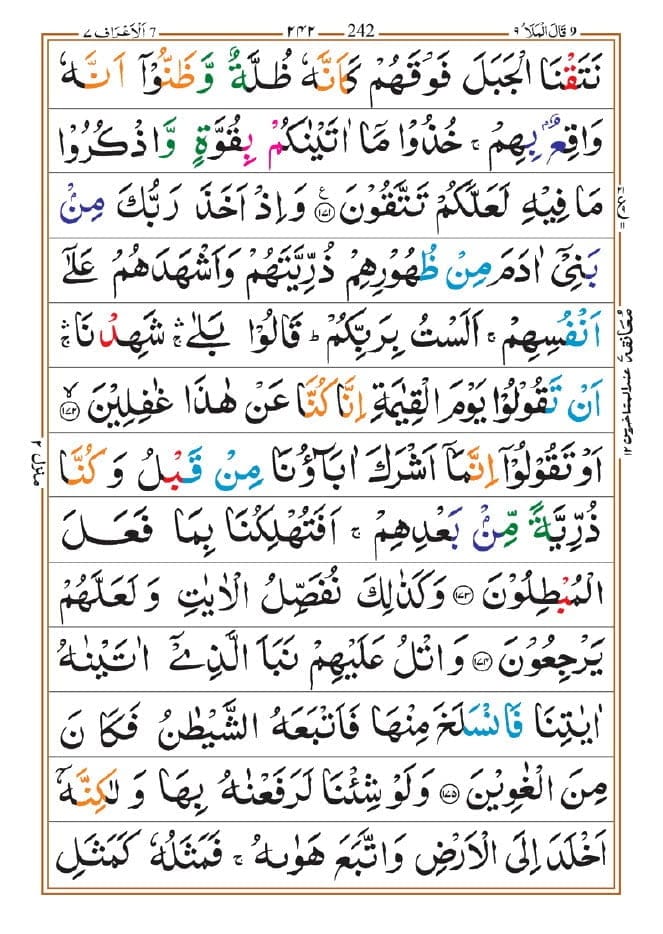 ٩ قَالَ الْمَلَاُ 9 242 ٢٤٢ 7 اَلْاَعْرَاف ٧
نَتَقْنَا الْجَبَلَ فَوْقَهُمْ كَاَنَّهٗ ظُلَّةٌ وَّظَنُّوْۤا اَنَّهٗ
وَاقِعٌۢ بِهِمْ ۚ خُذُوْا مَاۤ اٰتَيْنٰكُمْ بِقُوَّةٍ وَّاذْكُرُوْا
مَا فِيْهِ لَعَلَّكُمْ تَتَّقُوْنَ ﴿١٧١﴾ ع وَاِذْ اَخَذَ رَبُّكَ مِنْۢ
بَنِيْۤ اٰدَمَ مِنْ ظُهُوْرِهِمْ ذُرِّيَّتَهُمْ وَاَشْهَدَهُمْ عَلٰۤى
اَنْفُسِهِمْ ۚ اَلَسْتُ بِرَبِّكُمْ ؕ قَالُوْا بَلٰى ۛۚ شَهِدْنَا ۛۚ
اَنْ تَقُوْلُوْا يَوْمَ الْقِيٰمَةِ اِنَّا كُنَّا عَنْ هٰذَا غٰفِلِيْنَ ۙ﴿١٧٢﴾
اَوْ تَقُوْلُوْۤا اِنَّمَاۤ اَشْرَكَ اٰبَآؤُنَا مِنْ قَبْلُ وَكُنَّا
ذُرِّيَّةً مِّنْۢ بَعْدِهِمْ ۚ اَفَتُهْلِكُنَا بِمَا فَعَلَ
الْمُبْطِلُوْنَ ﴿١٧٣﴾ وَكَذٰلِكَ نُفَصِّلُ الْاٰيٰتِ وَلَعَلَّهُمْ
يَرْجِعُوْنَ ﴿١٧٤﴾ وَاتْلُ عَلَيْهِمْ نَبَاَ الَّذِيْۤ اٰتَيْنٰهُ
اٰيٰتِنَا فَانْسَلَخَ مِنْهَا فَاَتْبَعَهُ الشَّيْطٰنُ فَكَانَ
مِنَ الْغٰوِيْنَ ﴿١٧٥﴾ وَلَوْ شِئْنَا لَرَفَعْنٰهُ بِهَا وَلٰكِنَّهٗۤ
اَخْلَدَ اِلَى الْاَرْضِ وَاتَّبَعَ هَوٰىهُ ۚ فَمَثَلُهٗ كَمَثَلِ
معانقة عند المتاخرين ١٢
منزل ٢